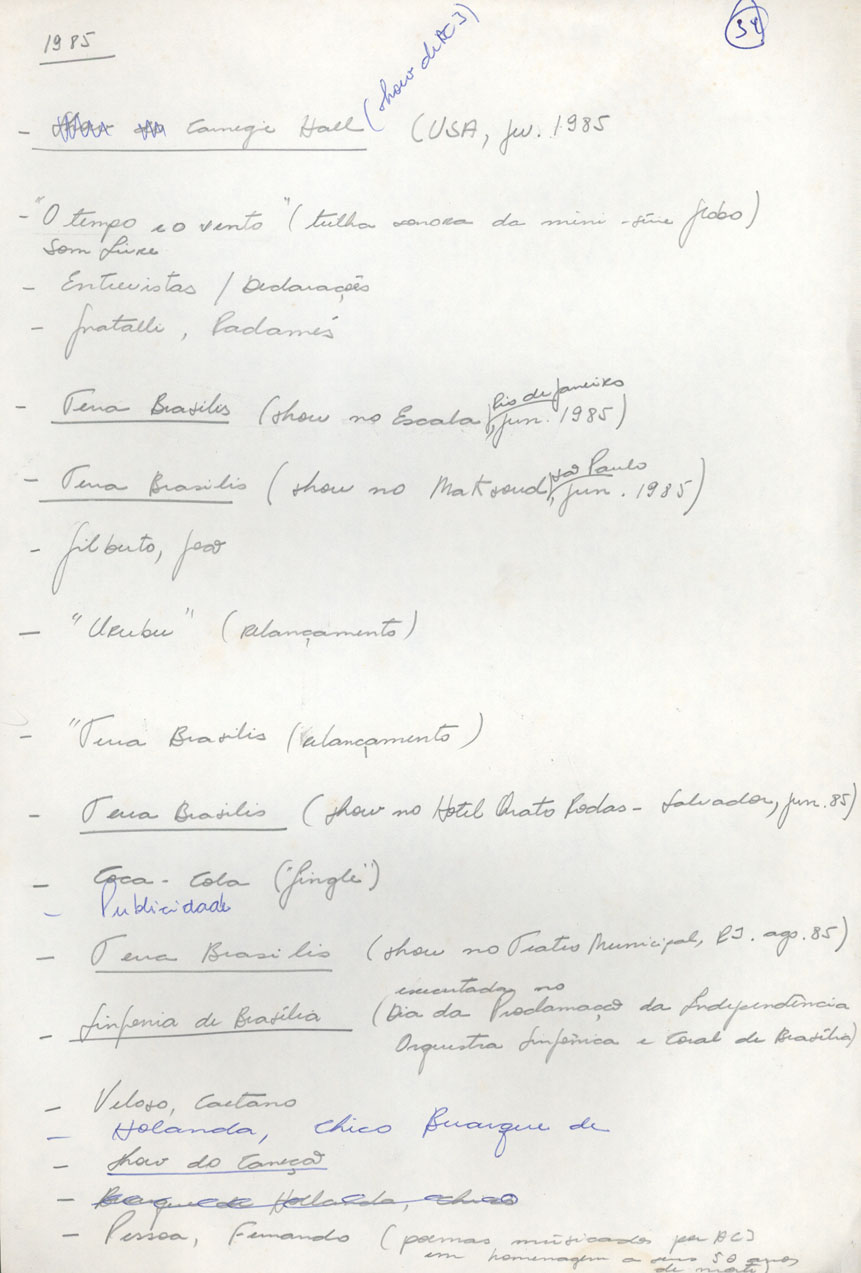 1985
34
- Carnegie Hall (show de ACJ) (USA, fev. 1985
- "O tempo e o vento" (trilha sonora da mini-série Globo)
Som Livre
- Entrevistas / Declarações
- Gnatalli, Radamés
- Terra Brasilis (show no Escala, Rio de Janeiro, jun. 1985)
- Terra Brasilis (show no Maksoud, São Paulo, jun. 1985)
- Gilberto, João
- "Urubu" (relançamento)
- "Terra Brasilis (relançamento)
- Terra Brasilis (show no Hotel Quatro Rodas - Salvador, jun. 85)
- Coca-Cola ("Jingle")
- Publicidade
- Terra Brasilis (show no Teatro Municipal, RJ. ago. 85)
- Sinfonia de Brasília (executada no Dia da Proclamação da Independência
Orquestra Sinfônica e Coral de Brasília)
- Veloso, Caetano
- Holanda, Chico Buarque de
- Show do Canecão
- Buarque de Hollanda, Chico
- Pessoa, Fernando (poemas musicados por ACJ
em homenagem a seus 50 anos
de morte)